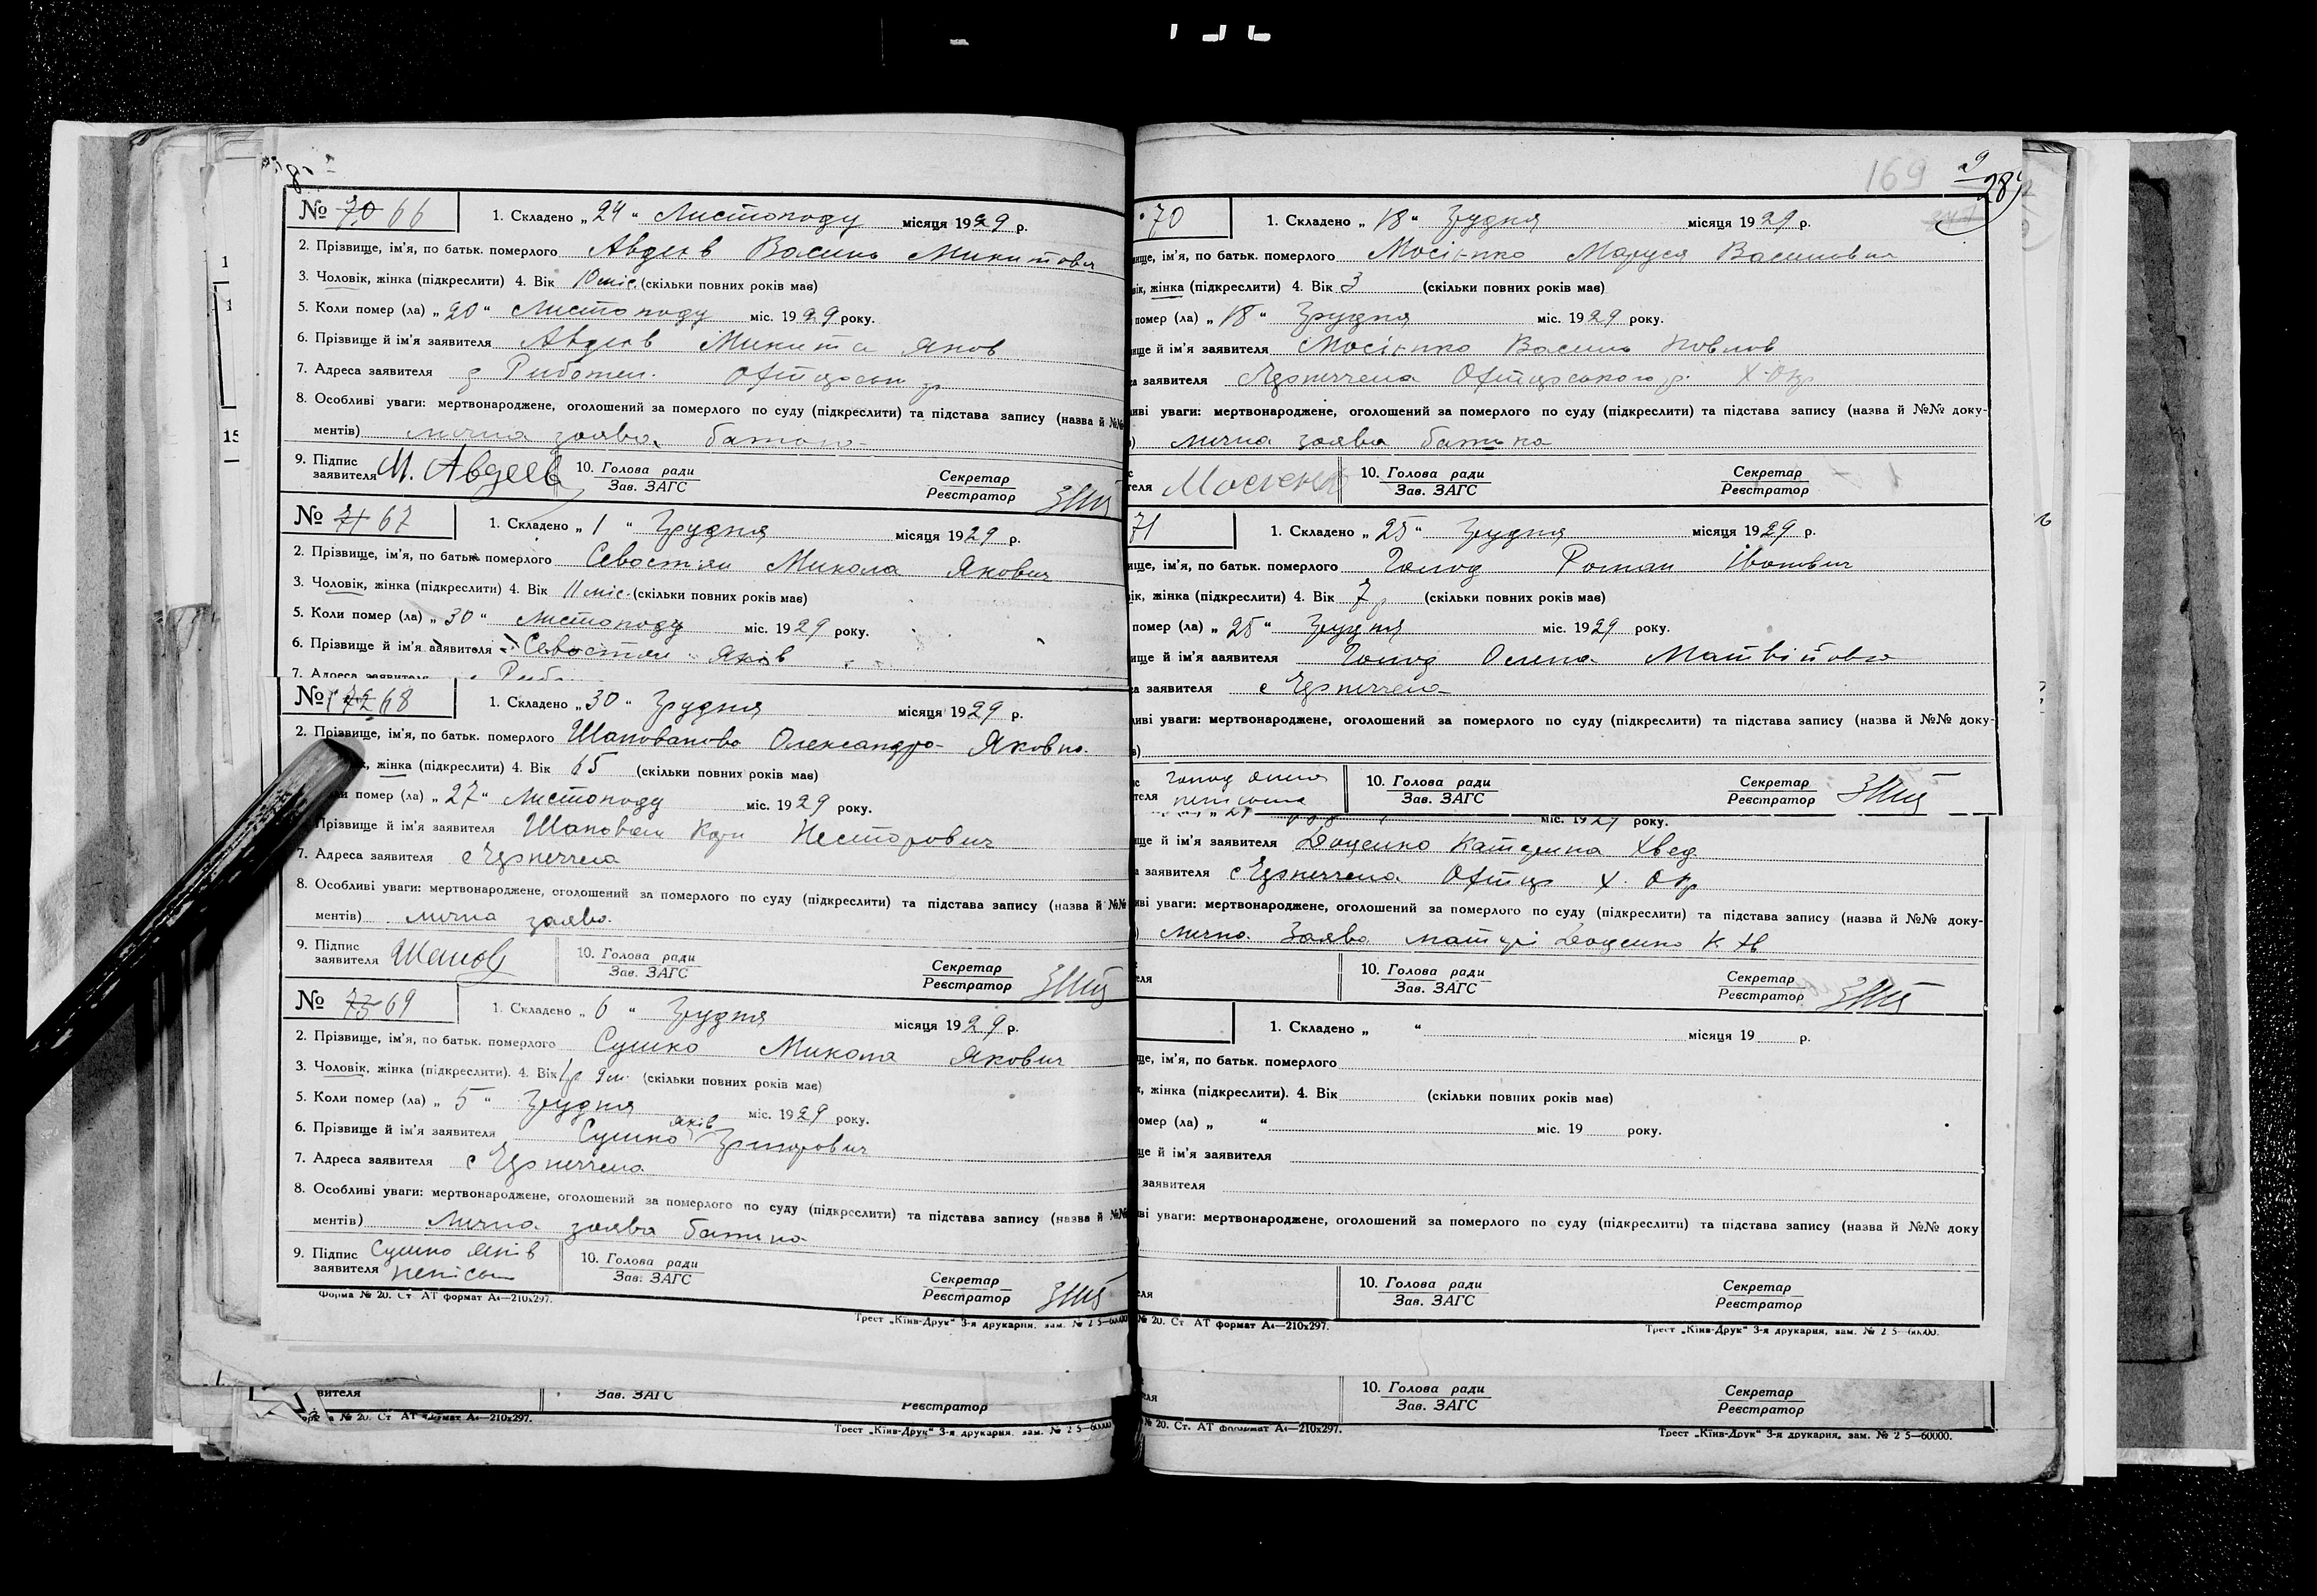 № 70 66
1. Складено „ 24 “ Листопаду місяця 1929 р.
2. Прізвище, ім'я, по батьк. померлого Авдеєв Василь Микитович
3. Чоловік, жінка (підкреслити) 4. Вік 10 міс. (скільки повних років має)
5. Коли помер (ла) „ 20 “ Листопаду міс. 1929 року.
6. Прізвище й ім'я заявителя Авдеєв Микита Яков
7. Адреса заявителя
8. Особливі уваги: мертвонароджене, оголошений за померлого по суду (підкреслити) та підстава запису (назва й №№
ментів) лична заява батька
9. Підпис заявителя М. Авдеев 10. Голова ради Зав. ЗАГС Секретар Реєстратор
№ 71 67
1. Складено „ 1 “ Грудня місяця 1929 р.
2. Прізвище, ім'я, по батьк. померлого Севостян Микола Якович
3. Чоловік, жінка (підкреслити) 4. Вік 11 міс. (скільки повних років має)
5. Коли помер (ла) „ 30 “ Листопаду міс. 1929 року.
6. Прізвище й ім'я заявителя Севостян Яків
7. Адреса заявителя
№ 72 68
1. Складено „ 30 “ Грудня місяця 1929 р.
2. Прізвище, ім'я, по батьк. померлого Шаповалова Олександра Яковна
жінка (підкреслити) 4. Вік 65 (скільки повних років має)
помер (ла) „ 27 “ Листопаду міс. 1929 року.
Прізвище й ім'я заявителя Шаповал Несторович
7. Адреса заявителя с
8. Особливі уваги: мертвонароджене, оголошений за померлого по суду (підкреслити) та підстава запису (назва й №№
ментів) лична заява
9. Підпис заявителя 10. Голова ради Зав. ЗАГС Секретар Реєстратор
№ 73 69
1. Складено „ 6 “ Грудня місяця 1929 р.
2. Прізвище, ім'я, по батьк. померлого Сушко Микола Якович
3. Чоловік, жінка (підкреслити). 4. Вік 1 р 9 м. (скільки повних років має)
5. Коли помер (ла) „ 5 “ Грудня міс. 1929 року.
6. Прізвище й ім'я заявителя Сушко Яків Григорович
7. Адреса заявителя с
8. Особливі уваги: мертвонароджене, оголошений за померлого по суду (підкреслити) та підстава запису (назва й №№
ментів) Лична заява батька
9. Підпис заявителя Сушко Яків неписьм 10. Голова ради Зав. ЗАГС Секретар Реєстратор
Форма № 20. Ст. АТ формат А4—210х297.
Трест „Київ-Друк“ 3-я друкарня, зам. № 2 5—60000
вителя Зав. ЗАГС Реєстратор
№ 20. Ст. АТ формат А4—210х297.
Трест „Київ-Друк“ 3-я друкарня, зам. № 2 5—60000
169
70
1. Складено „ 18 “ Грудня місяця 1929 р.
ім'я, по батьк. померлого Мосієнко Маруся Василівна
жінка (підкреслити) 4. Вік 3 (скільки повних років має)
помер (ла) „ 18 “ Грудня міс. 1929 року.
й ім'я заявителя Мосієнко Василь Павлов
заявителя
уваги: мертвонароджене, оголошений за померлого по суду (підкреслити) та підстава запису (назва й №№ доку-
лична заява батька
10. Голова ради Зав. ЗАГС Секретар Реєстратор
71
1. Складено „ 25 “ Грудня місяця 1929 р.
ім'я, по батьк. померлого Голод Роман Іванович
жінка (підкреслити) 4. Вік 7 р (скільки повних років має)
помер (ла) „ 25 “ Грудня міс. 1929 року.
й ім'я заявителя Голод Олена Матвіївна
заявителя с
уваги: мертвонароджене, оголошений за померлого по суду (підкреслити) та підстава запису (назва й №№ доку-
Голод неписьма 10. Голова ради Зав. ЗАГС Секретар Реєстратор
міс. 1929 року.
й ім'я заявителя Доценко Катерина Хвед
заявителя с
уваги: мертвонароджене, оголошений за померлого по суду (підкреслити) та підстава запису (назва й №№ доку-
лична Заява матері Доценко К Хв
10. Голова ради Зав. ЗАГС Секретар Реєстратор
1. Складено „ “ місяця 19 р.
ім'я, по батьк. померлого
жінка (підкреслити). 4. Вік (скільки повних років має)
помер (ла) „ “ міс. 19 року.
й ім'я заявителя
заявителя
уваги: мертвонароджене, оголошений за померлого по суду (підкреслити) та підстава запису (назва й №№ доку
10. Голова ради Зав. ЗАГС Секретар Реєстратор
№ 20. Ст. АТ формат А4—210х297.
Трест „Київ-Друк“ 3-я друкарня, зам. № 2 5—60000.
10. Голова ради Зав. ЗАГС Секретар Реєстратор
№ 20. Ст. АТ формат А4—210х297.
Трест „Київ-Друк“ 3-я друкарня, зам. № 2 5—60000.